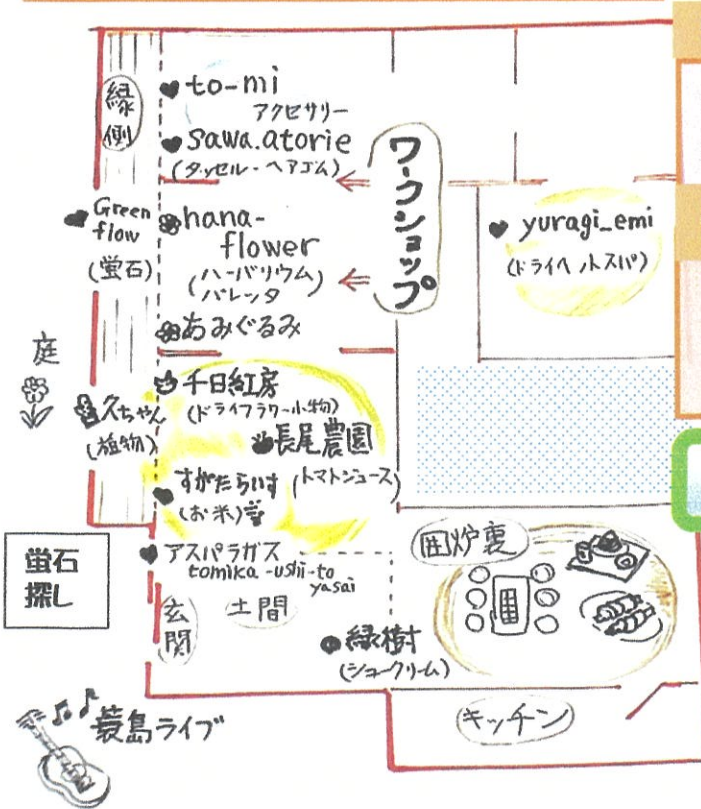 縁側
to-mi
アクセサリー
sawa.atorie
(タッセル・ヘアゴム)
ワークショップ
Green
flow
(蛍石)
hana-
flower
(ハーバリウム
バレッタ)
あみぐるみ
yuragi_emi
(ドライヘッドスパ)
庭
久ちゃん
(植物)
千日紅房
(ドライフラワー小物)
長尾農園
(トマトジュース)
すがたらいす
(お米)
アスパラガス
tomika-ushi-to
yasai
蛍石
探し
玄関
土間
緑樹
(シュークリーム)
囲炉裏
キッチン
蓑島ライブ